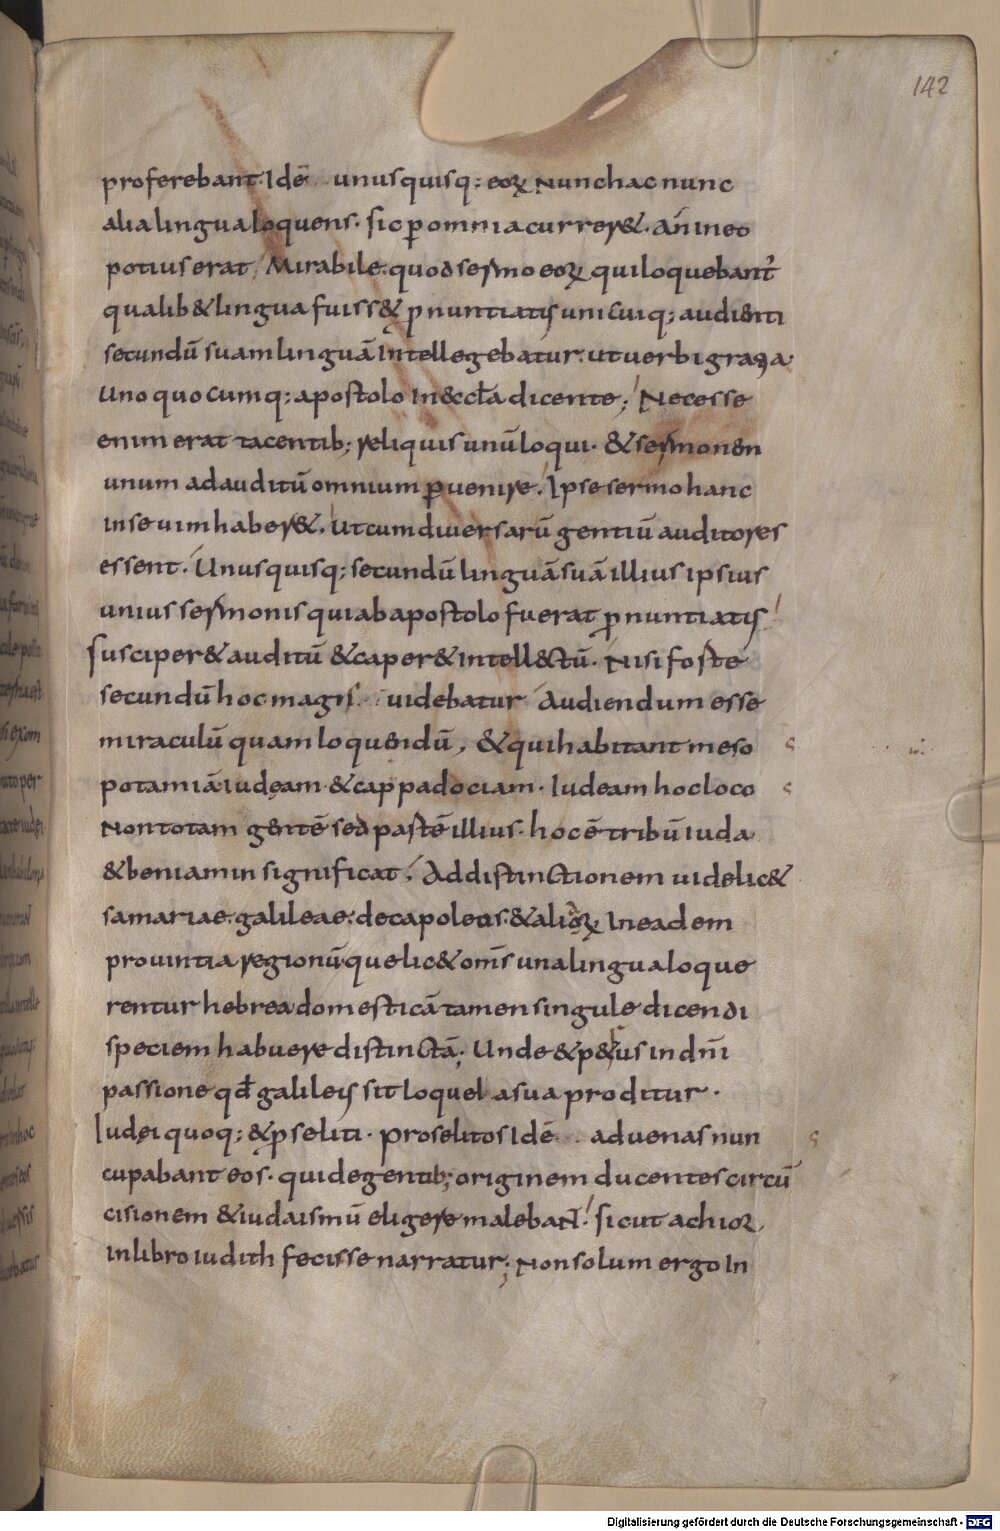 142
proferebant. Idē unusquisq; eoꝝ Nunc hac nunc
alia lingua loquens. sic ꝑ omnia curreret. Ań ineo
potius erat, Mirabile. quod sermo eoꝝ qui loquebant᷑
qualib& lingua fuiss& ꝓnuntiatus unicuiq; audienti
secundū suam linguā Intellegebatur. ut uerbi gratia.
Uno quocumq; apostolo In eccl̄a dicente; Necesse
enim erat tacentib; reliquis unū loqui. & sermonen
unum ad auditū omnium ꝑuenire. Ipse sermo hanc
in se uim haber&. Ut cum diuersarū gentiū auditores
essent. Unusquisq; secundū linguā suā illius ipsius
unius sermonis qui ab apostolo fuerat ꝓnuntiatus
susciper& auditū & caper& intell&ctū. Nisi forte
secundū hoc magis uidebatur Audiendum esse
miraculū quam loquendū, & qui habitant meso
potamiā iudęam & cappadociam. Iudeam hoc loco
Non totam gentē sed partē illius. hoc ē tribū iuda
& beniamin significat. Ad distinctionem uidelic&
samariae. galileae. decapoleos. & alioꝝ In eadem
prouintia regionū que lic& om̄s una lingua loque
rentur hebrea domesticā tamen singule dicendi
speciem habuere distinctā. Unde & p&rus in dn̄i
passione qđ galileus sit loquela sua proditur.
Iudęi quoq; & ꝓseliti. proselitos Idē aduenas nun
cupabant eos. qui de gentib; originem ducentes circū
cisionem & iudaismū eligere malebant. sicut achior
In libro iudith fecisse narratur; Non solum ergo In
Digitalisierung gefördert durch die Deutsche Forschungsgemeinschaft - DFG